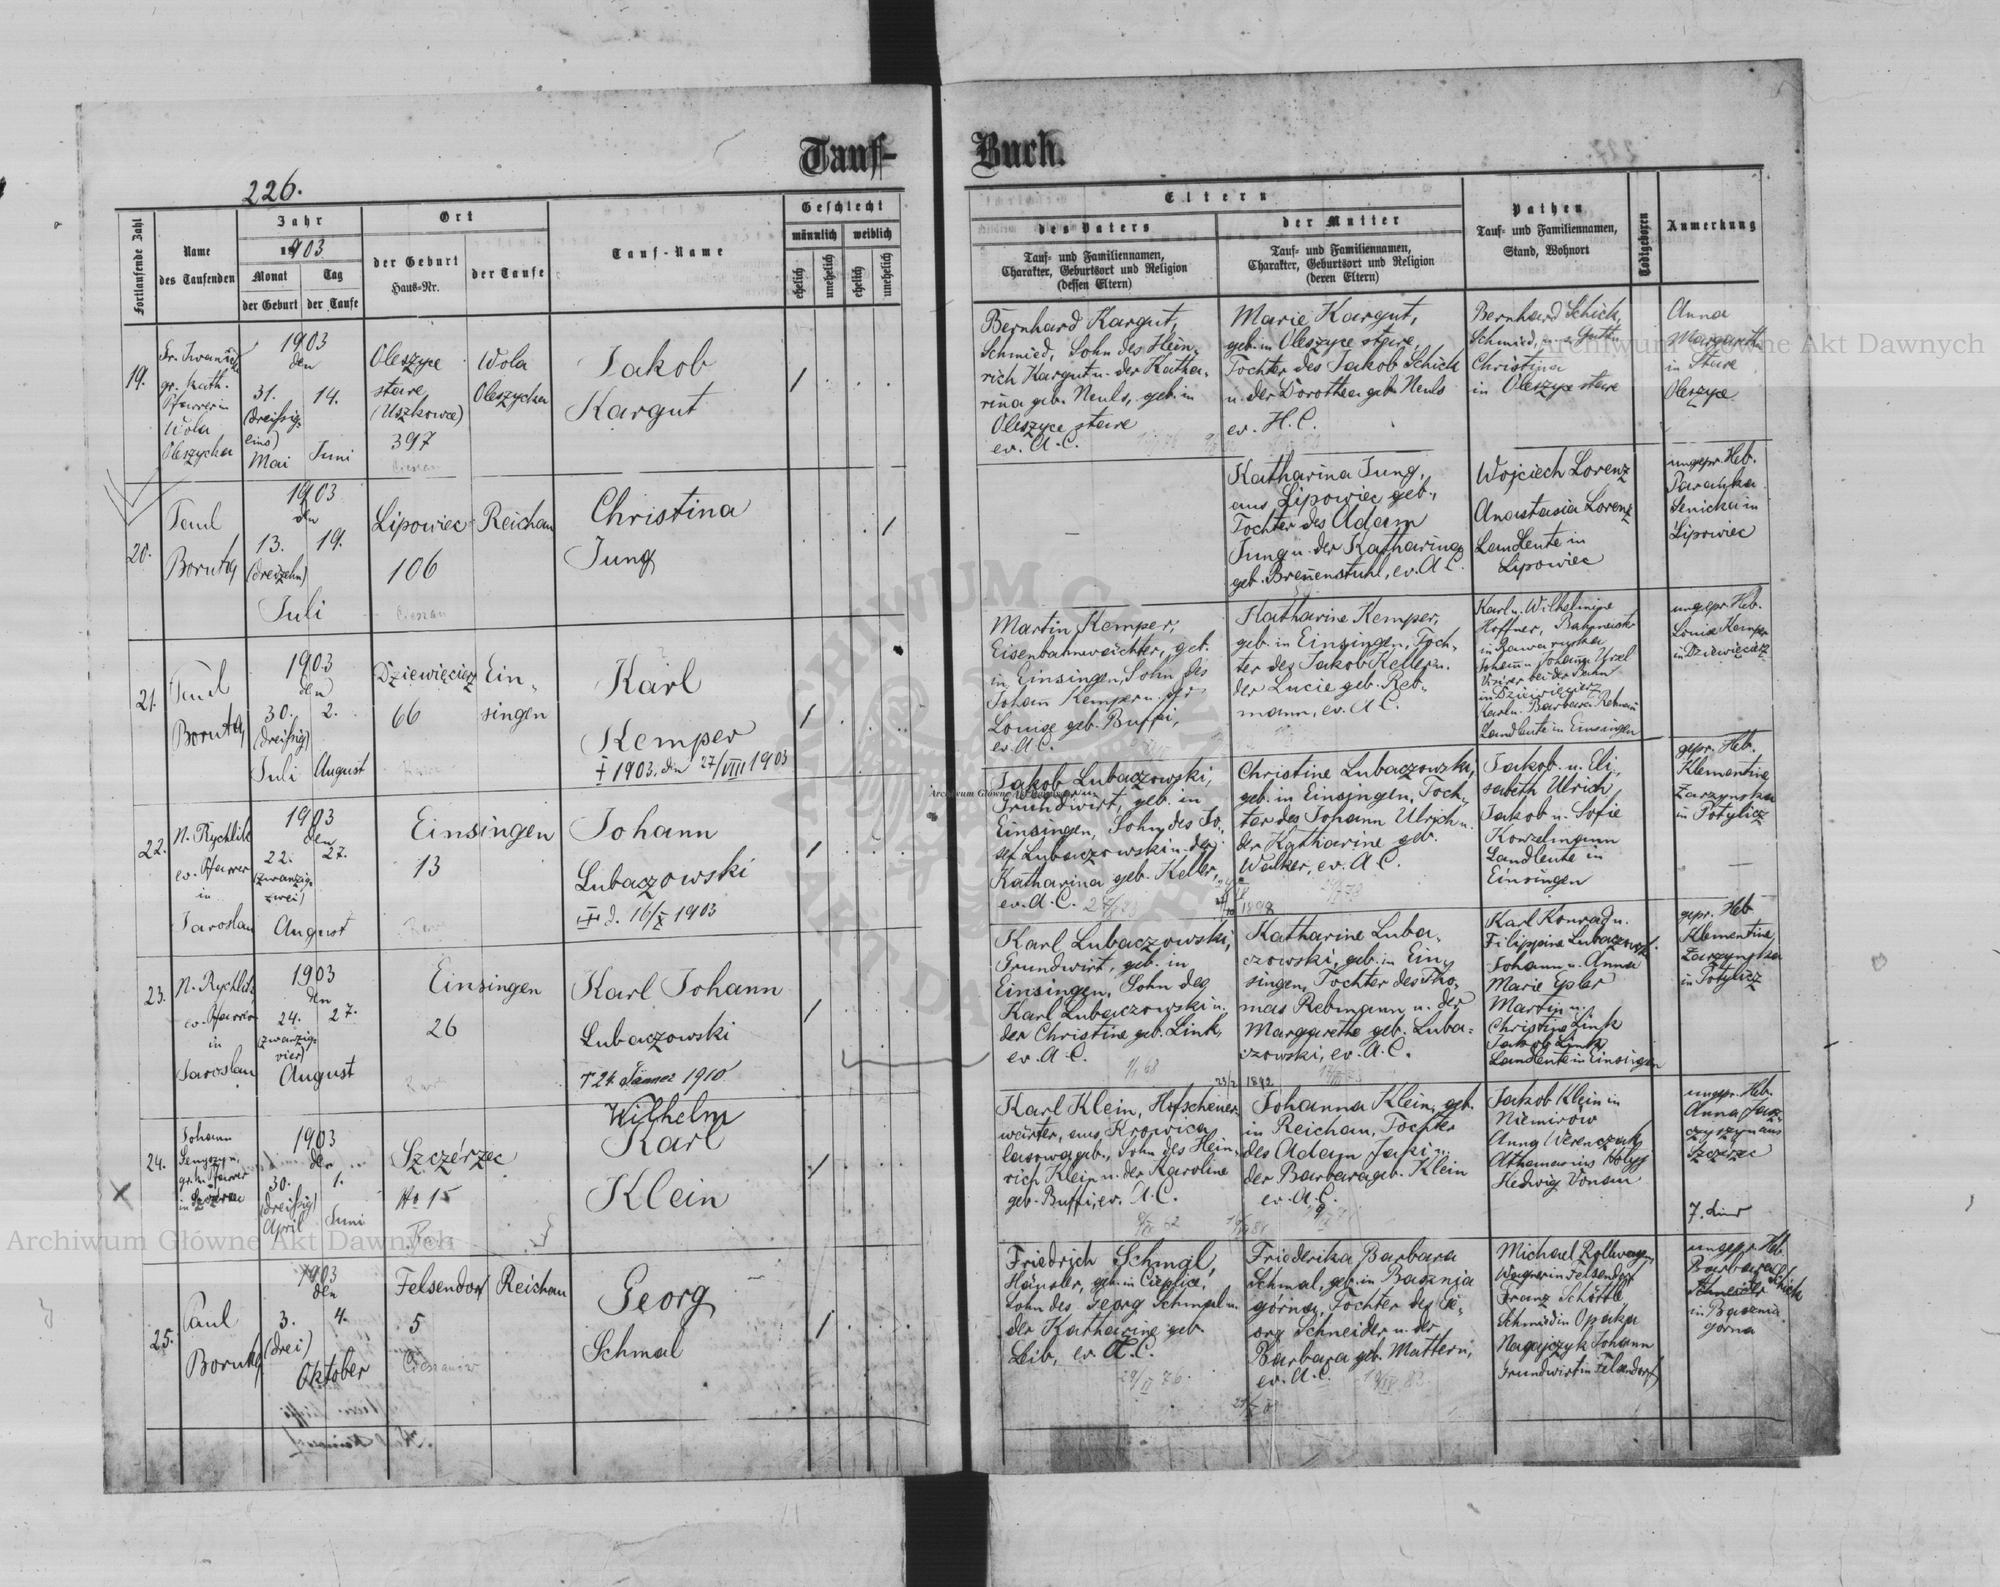 Tauf-
Buch.
226.
Fortlaufende Zahl
Name
des Taufenden
Jahr
1903
Monat
Tag
der Geburt
der Taufe
Ort
der Geburt
Haus-Nr.
der Taufe
Tauf-Name
Geschlecht
männlich
weiblich
ehelich
unehelich
ehelich
unehelich
Eltern
des Vaters
Tauf- und Familiennamen,
Charakter, Geburtsort und Religion
(dessen Eltern)
der Mutter
Tauf- und Familiennamen,
Charakter, Geburtsort und Religion
(deren Eltern)
Pathen
Tauf- und Familiennamen,
Stand, Wohnort
Todtgeboren
Anmerkung
19.
gr. kath.
Pfarrer in
Wola
Oleszycka
1903
den
31.
14.
(dreißig-
eins)
Mai
Juni
Oleszyce
stare
(Uszkowce)
397
Wola
Oleszycka
Jakob
Kargut
Bernhard Kargut,
Schmied, Sohn des Hein-
rich Kargut u. der Katha-
rina geb. Neuls, geb. in
Oleszyce stare
ev. A.C.
Marie Kargut,
geb. in Oleszyce stare,
Tochter des Jakob Schick
u. der Dorothea geb. Neuls
ev. H.C.
Bernhard Schick,
Schmied, u. s. Gattin
Christina
in Oleszyce stare
Anna
in Stare
Oleszyce
20.
Paul
Boruta
1903
den
13.
19.
(dreizehn)
Juli
Lipowiec
106
Reichau
Christina
Jung
Katharina Jung,
aus Lipowiec geb.,
Tochter des Adam
Jung u. der Katharina
geb. Breuenstuhl, ev. A.C.
Wojciech Lorenz
Anastasia Lorenz
Landleute in
Lipowiec
ungepr. Heb.
Parańka
Senicka in
Lipowiec
21.
Paul
Boruta
1903
den
30.
2.
(dreißig)
Juli
August
Dziewięcierz
66
Ein-
singen
Karl
Kemper
† 1903. den 27/VIII 1903
Martin Kemper,
Eisenbahnwächter, geb.
in Einsingen, Sohn des
Johann Kemper u. der
Louise geb. Buffi,
ev. A.C.
Katharine Kemper,
geb. in Einsingen, Toch-
ter des Jakob Keller u.
der Lucie geb. Reb-
mann, ev. A.C.
Karl u. Wilhelmine
Hoffner, Bahnmeister
in Rawa ruska
bei der Bahn
in Dziewięcierz
Karl u. Barbara Rebmann
Landleute in Einsingen
ungepr. Heb.
Louise Kemper
in Dziewięcierz
22.
N. Rychlik
ev. Pfarrer
in
Jaroslau
1903
den
22.
27.
(zwanzig-
zwei)
August
Einsingen
13
Johann
Lubaczowski
d. 16/X 1903
Jakob Lubaczowski,
Grundwirt, geb. in
Einsingen, Sohn des Jo-
sef Lubaczowski u. der
Katharina geb. Keller,
ev. A.C.
Christine Lubaczowski,
geb. in Einsingen, Toch-
ter des Johann Ulrych u.
der Katharine geb.
Walker, ev. A.C.
1898
Jakob u. Eli-
sabeth Ulrich
Jakob u. Sofie
Konzelmann
Landleute in
Einsingen
gepr. Heb.
Klementine
Zarzynska
in Potylicz
23.
N. Rychlik
ev. Pfarrer
in
Jaroslau
1903
den
24.
27.
(zwanzig-
vier)
August
Einsingen
26
Karl Johann
Lubaczowski
† 24. Jänner 1910
Karl Lubaczowski,
Grundwirt, geb. in
Einsingen, Sohn des
Karl Lubaczowski u.
der Christine geb. Link,
ev. A.C.
Katharine Luba-
czowski, geb. in Ein-
singen, Tochter des Tho-
mas Rebmann u. der
Margarethe geb. Luba-
czowski, ev. A.C.
1892
Karl Konrad u.
Filippine Lubaczowski
Johann u. Anna
Marie Ypler
Martin u.
Christine Link
Jakob Link
Landleute in Einsingen
gepr. Heb.
Klementine
Zarzynska
in Potylicz
24.
Johann
gr. k. Pfarrer
in Szczerzec
1903
den
30.
1.
(dreißig)
April
Juni
Szczérzec
No 15
Wilhelm
Karl
Klein
Karl Klein, Hofscheuer-
wärter, aus Krowica
lasowa geb., Sohn des Hein-
rich Klein u. der Karoline
geb. Buffi, ev. A.C.
Johanna Klein, geb.
in Reichau, Tochter
des Adam Jaki u.
der Barbara geb. Klein
ev. A.C.
Jakob Klein in
Niemirów
Anna Werenczak
Athanasius Holyj
Hedwig Vonau
ungepr. Heb.
Anna Jasz-
czyszyn aus
Szczerzec
25.
Paul
Boruta
1903
den
3.
4.
(drei)
Oktober
Felsendorf
5
Cieszanów
Reichau
Georg
Schmal
Friedrich Schmal,
Häusler, geb. in Cieplice,
Sohn des Georg Schmal u.
der Katharine geb.
Leib, ev. A.C.
Friederika Barbara
Schmal, geb. in Basznia
górna, Tochter des Ge-
org Schneider u. der
Barbara geb. Mattern,
ev. A.C.
Michael Rollwagen,
Wagner in Felsendorf
Franz Schöttle
Schmied in Opaka
Nagajczyk Johann
Grundwirt in Felsendorf
ungepr. Heb.
Barbara
Schick
in Basznia
gorna
Archiwum Główne Akt Dawnych
Archiwum Główne Akt Dawnych
Archiwum Główne Akt Dawnych